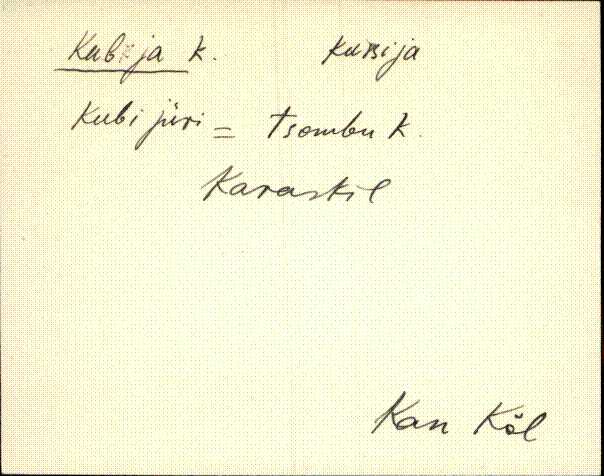 Kubija k. kubija
Kubi jüri = Tsombu k.
Karaskil
Kan Köl